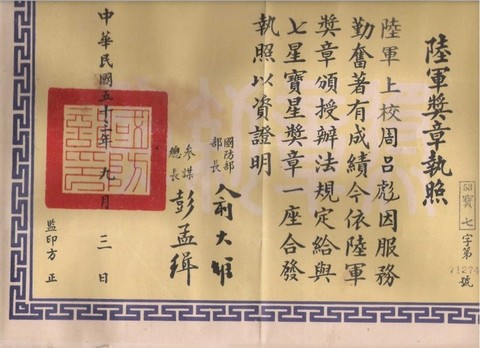 陸軍獎章執照
53寶七字第71274號
陸軍上校周呂彪因服務
勤奮著有成績今依陸軍
獎章頒授辦法規定給與
七星寶星獎章一座合發
執照以資證明
國防部部長 俞大維
參謀總長 彭孟緝
中華民國五十三年九月三日
監印方正